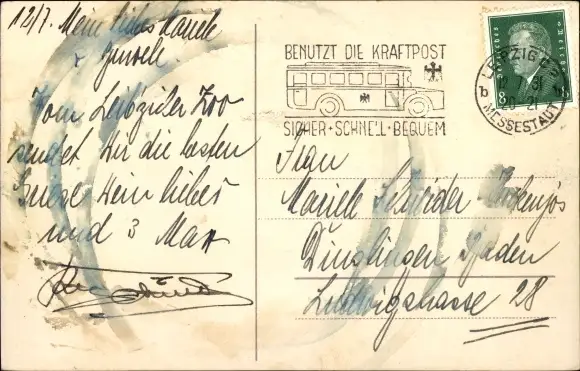 12/7. Mein liebes Mariele
Vom Leipziger Zoo
sendet Dir die besten
Grüsse Dein lieber
und 3 Max
BENUTZT DIE KRAFTPOST
SICHER + SCHNELL + BEQUEM
LEIPZIG C 2
MESSESTADT
8
Frau
Mariele
Dinglingen Baden
Ludwigstrasse 28